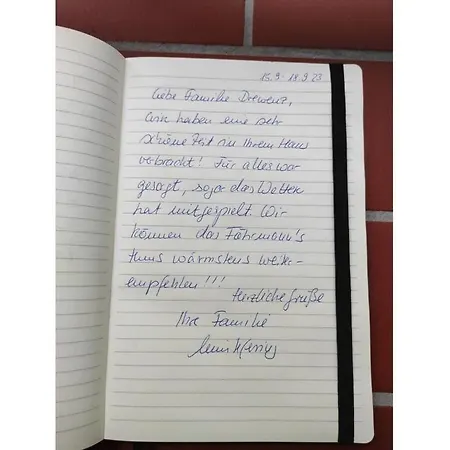 Liebe Familie Drewenz,
wir haben eine sehr
schöne Zeit in Ihrem Haus
verbracht! Für alles war
gesorgt, sogar das Wetter
hat mitgespielt. Wir
können das Fährmann's
Haus wärmstens weiter-
empfehlen!!!
Herzliche Grüße
Ihre Familie